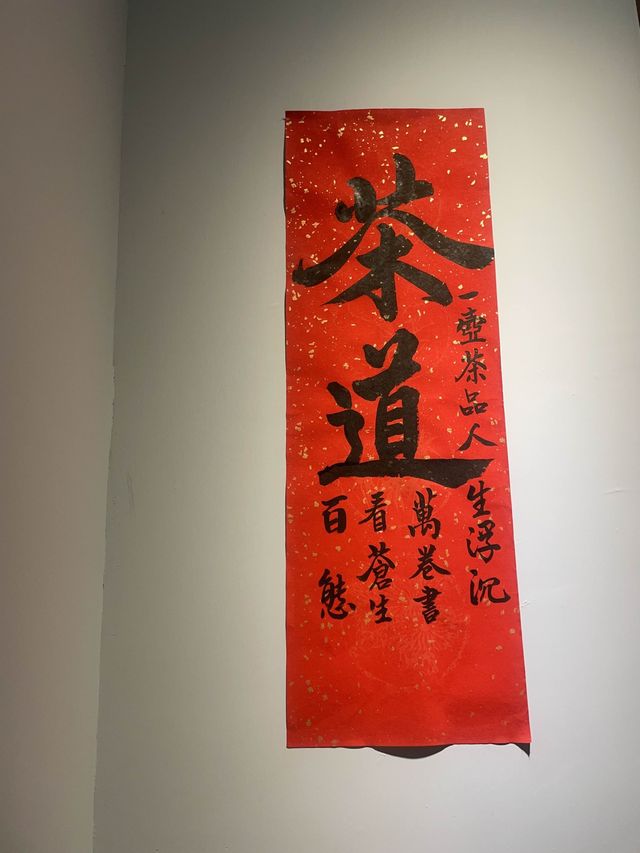 茶道
一壺茶品人生浮沉
萬卷書
看蒼生
百態